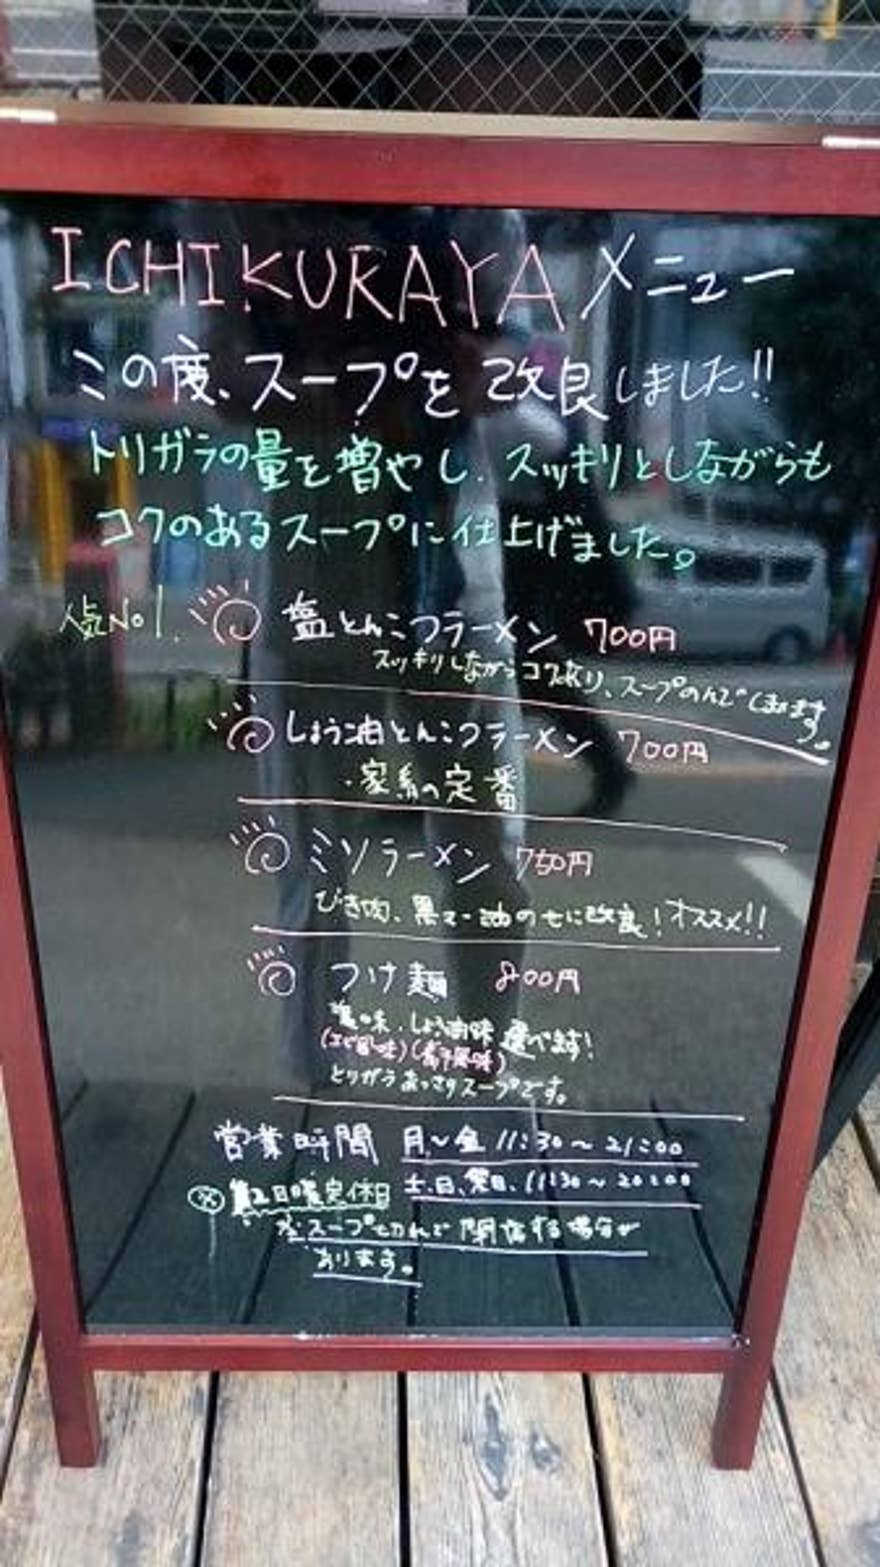 ICHIKURAYA メニュー
この度、スープを改良しました!!
トリガラの量を増やし、スッキリとしながらも
コクのあるスープに仕上げました。
人気No1.
塩とんこつラーメン 700円
スッキリしながらコクあり、スープのんでしまいます。
しょう油とんこつラーメン 700円
・家系の定番
ミソラーメン 750円
ひき肉、黒マー油のせに改良!オススメ!!
つけ麺 800円
塩味、しょう油味 選べます!
(エビ風味)(煮干風味)
とりガラあっさりスープです。
営業時間 月〜金 11:30〜21:00
土、日、祭日、11:30〜20:00
※ 第2日曜定休日
※スープ切れで閉店する場合が
あります。